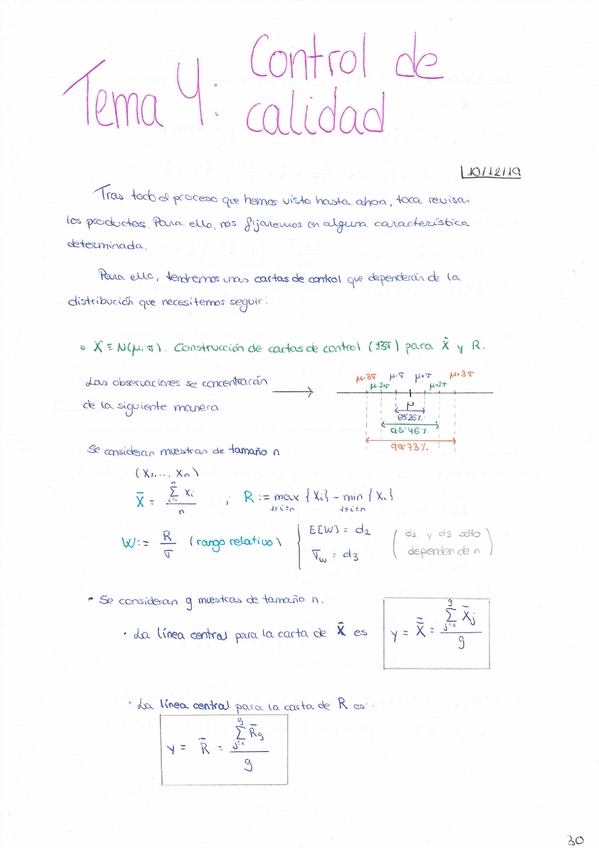 Tema 4: Control de
calidad
10/12/19
Tras todo el proceso que hemos visto hasta ahora, toca revisar
los productos. Para ello, nos fijaremos en alguna característica
determinada.
Para ello, tendremos unas cartas de control que dependerán de la
distribución que necesitemos seguir.
• X ≡ N(μ, σ). Construcción de cartas de control (±3σ) para X̄ y R.
Las observaciones se concentrarán
de la siguiente manera
→
μ-3σ μ-σ μ+σ μ+3σ
μ-2σ μ+2σ
μ
95'46%
99'73%
Se consideran muestras de tamaño n
(X₁,..., Xₙ)
X̄ = Σⁿᵢ₌₁ Xᵢ / n ; R := max {Xᵢ} - min {Xᵢ}
1≤i≤n 1≤i≤n
W := R/σ (rango relativo) | E[W] = d₂
σ_W = d₃
(d₂ y d₃ sólo
dependen de n)
• Se consideran g muestras de tamaño n.
• La línea central para la carta de X̄ es
y = X̿ = Σ X̄ⱼ / g
• La línea central para la carta de R es:
y = R̄ = Σ R̄g / g
30